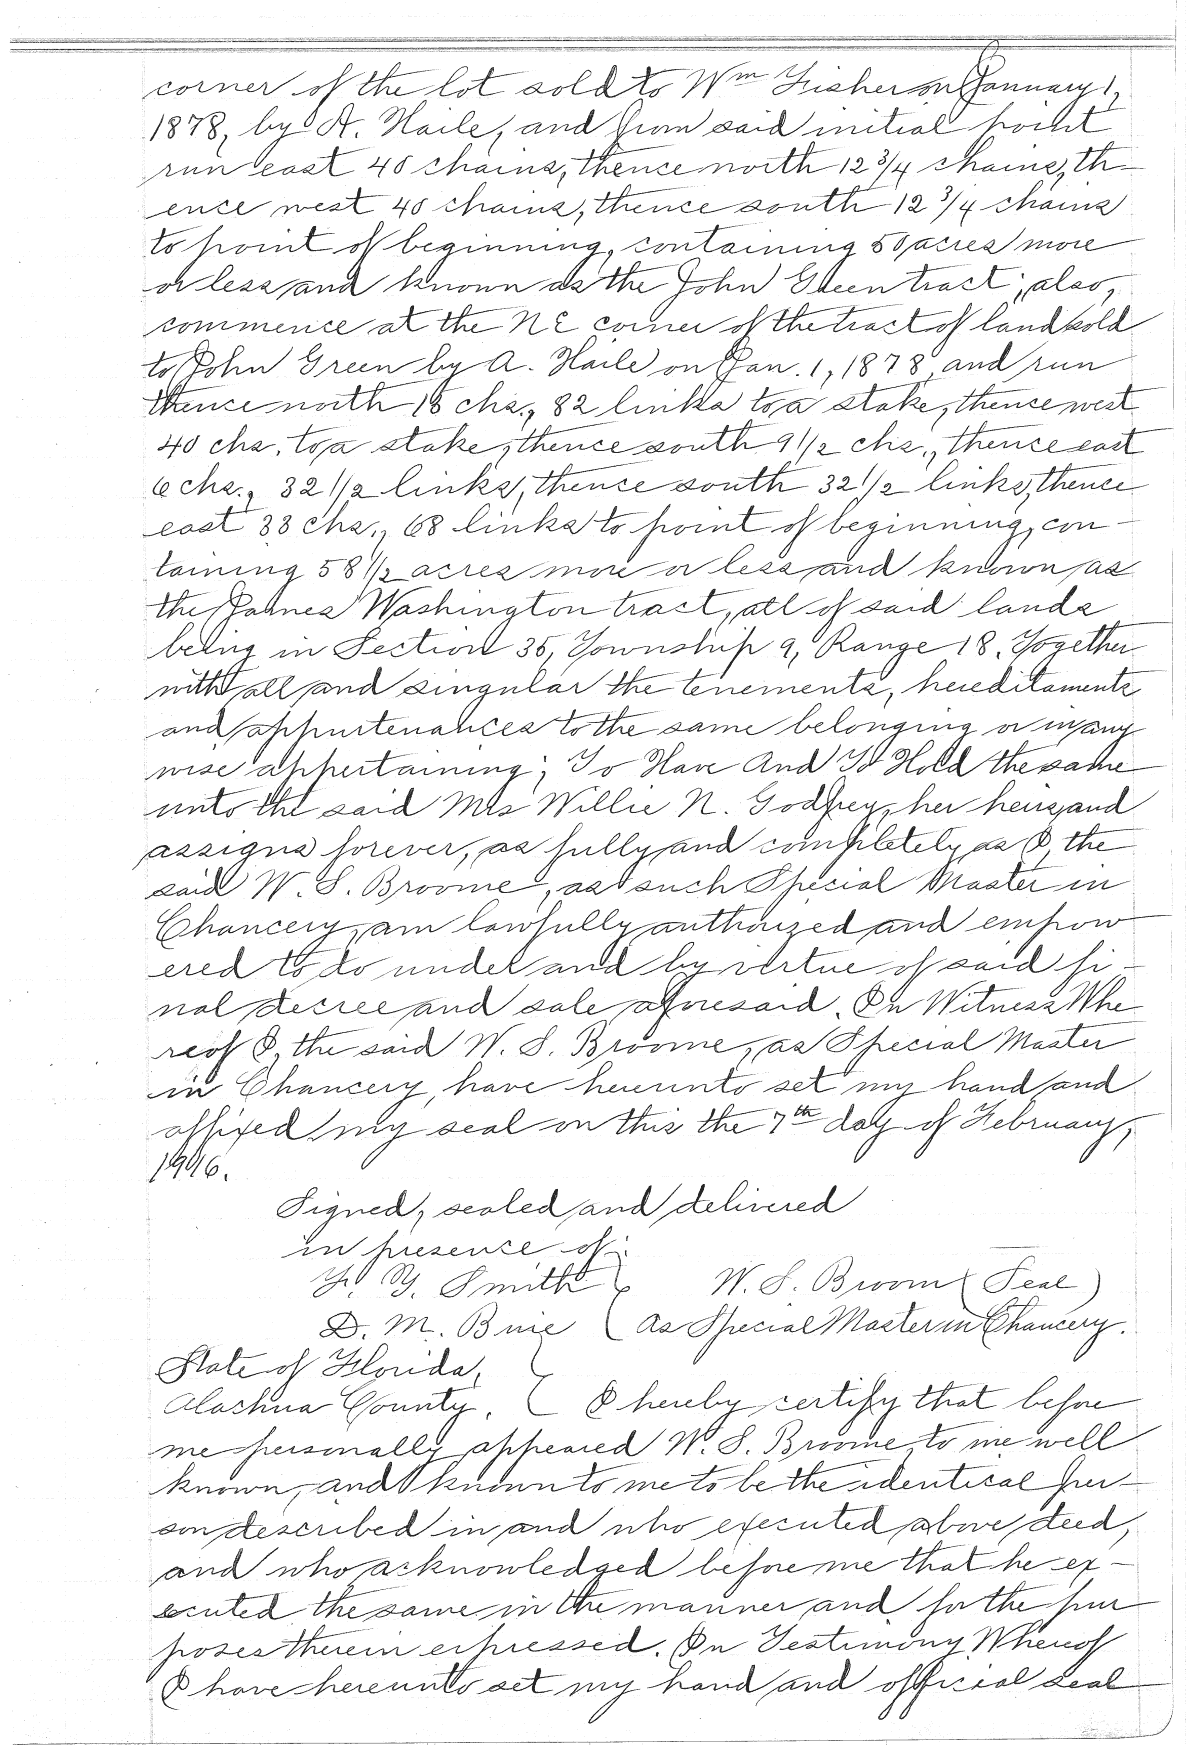 corner of the lot sold to Wm Fisher on January 1,
1878, by A. Haile, and from said initial point
run east 40 chains, thence north 12 3/4 chains, th-
ence west 40 chains, thence south 12 3/4 chains
to point of beginning, containing 50 acres more
or less and known as the John Green tract; also,
commence at the NE corner of the tract of land sold
to John Green by A. Haile on Jan. 1, 1878, and run
thence north 18 chs., 82 links to a stake, thence west
40 chs. to a stake, thence south 9 1/2 chs., thence east
6 chs., 32 1/2 links, thence south 32 1/2 links, thence
east 33 chs., 68 links to point of beginning, con-
taining 58 1/2 acres more or less and known as
the James Washington tract, all of said lands
being in Section 35, Township 9, Range 18. Together
with all and singular the tenements, hereditaments
and appurtenances to the same belonging or in any
wise appertaining; To Have And To Hold the same
unto the said Mrs Willie N. Godfrey, her heirs and
assigns forever, as fully and completely as I, the
said W. S. Broome, as such Special Master in
Chancery, am lawfully authorized and empow
ered to do under and by virtue of said fi-
nal decree and sale aforesaid. In Witness Whe
reof I, the said W. S. Broome, as Special Master
in Chancery, have hereunto set my hand and
affixed my seal on this the 7th day of February,
Signed, sealed and delivered
in presence of:
Smith W. S. Broom (Seal)
D. M. Buie ( As Special Master in Chancery.
State of Florida,
Alachua County. ( I hereby certify that before
me personally appeared W. S. Broome, to me well
known, and known to me to be the identical per-
son described in and who executed above deed,
and who acknowledged before me that he ex-
ecuted the same in the manner and for the pur
poses therein expressed. In Testimony Whereof
I have hereunto set my hand and official seal